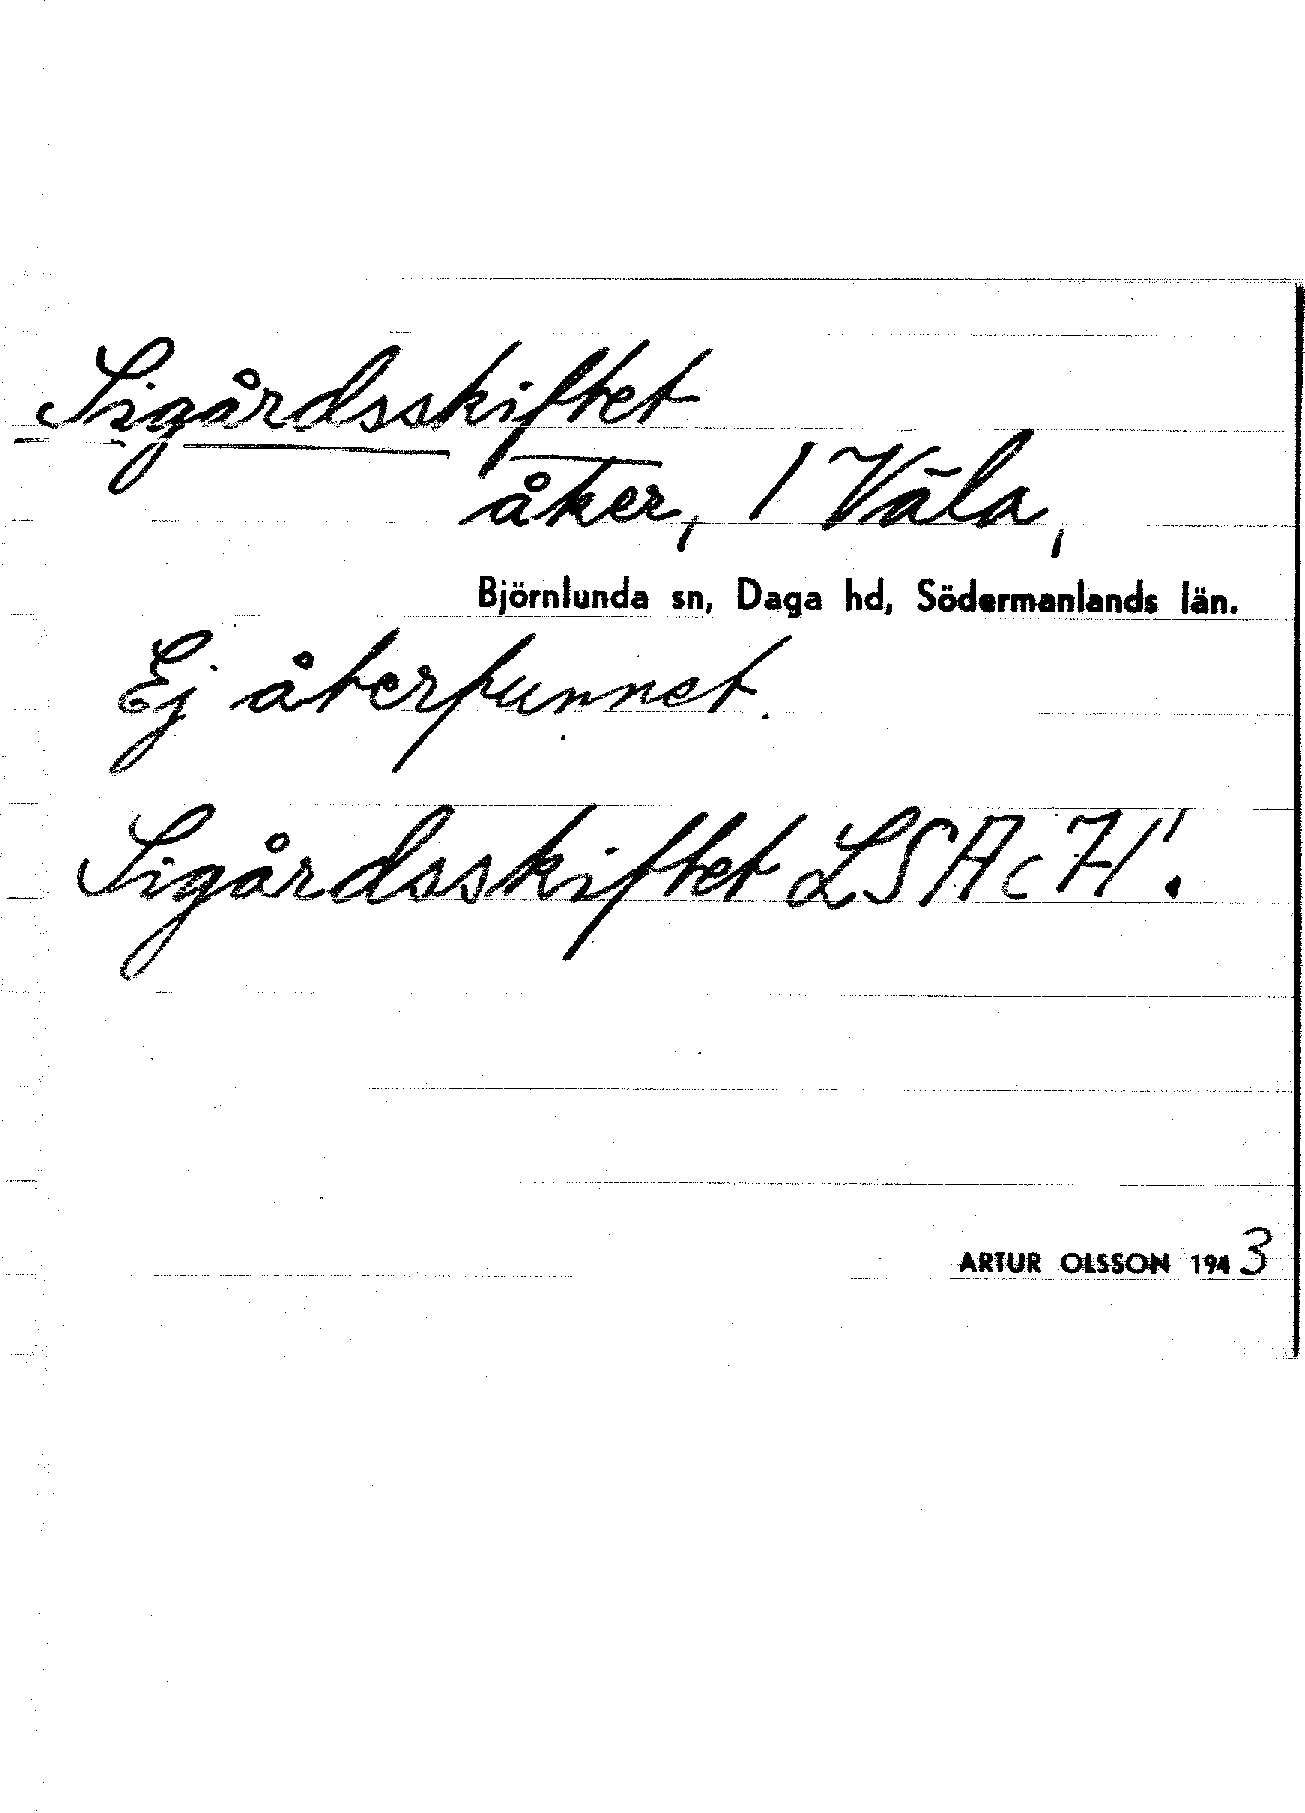 Sigårdsskiftet
åker, / Väla,
Björnlunda sn, Daga hd, Södermanlands län.
Ej återfunnet.
Sigårdsskiftet LSA c H!
ARTUR OLSSON 1943